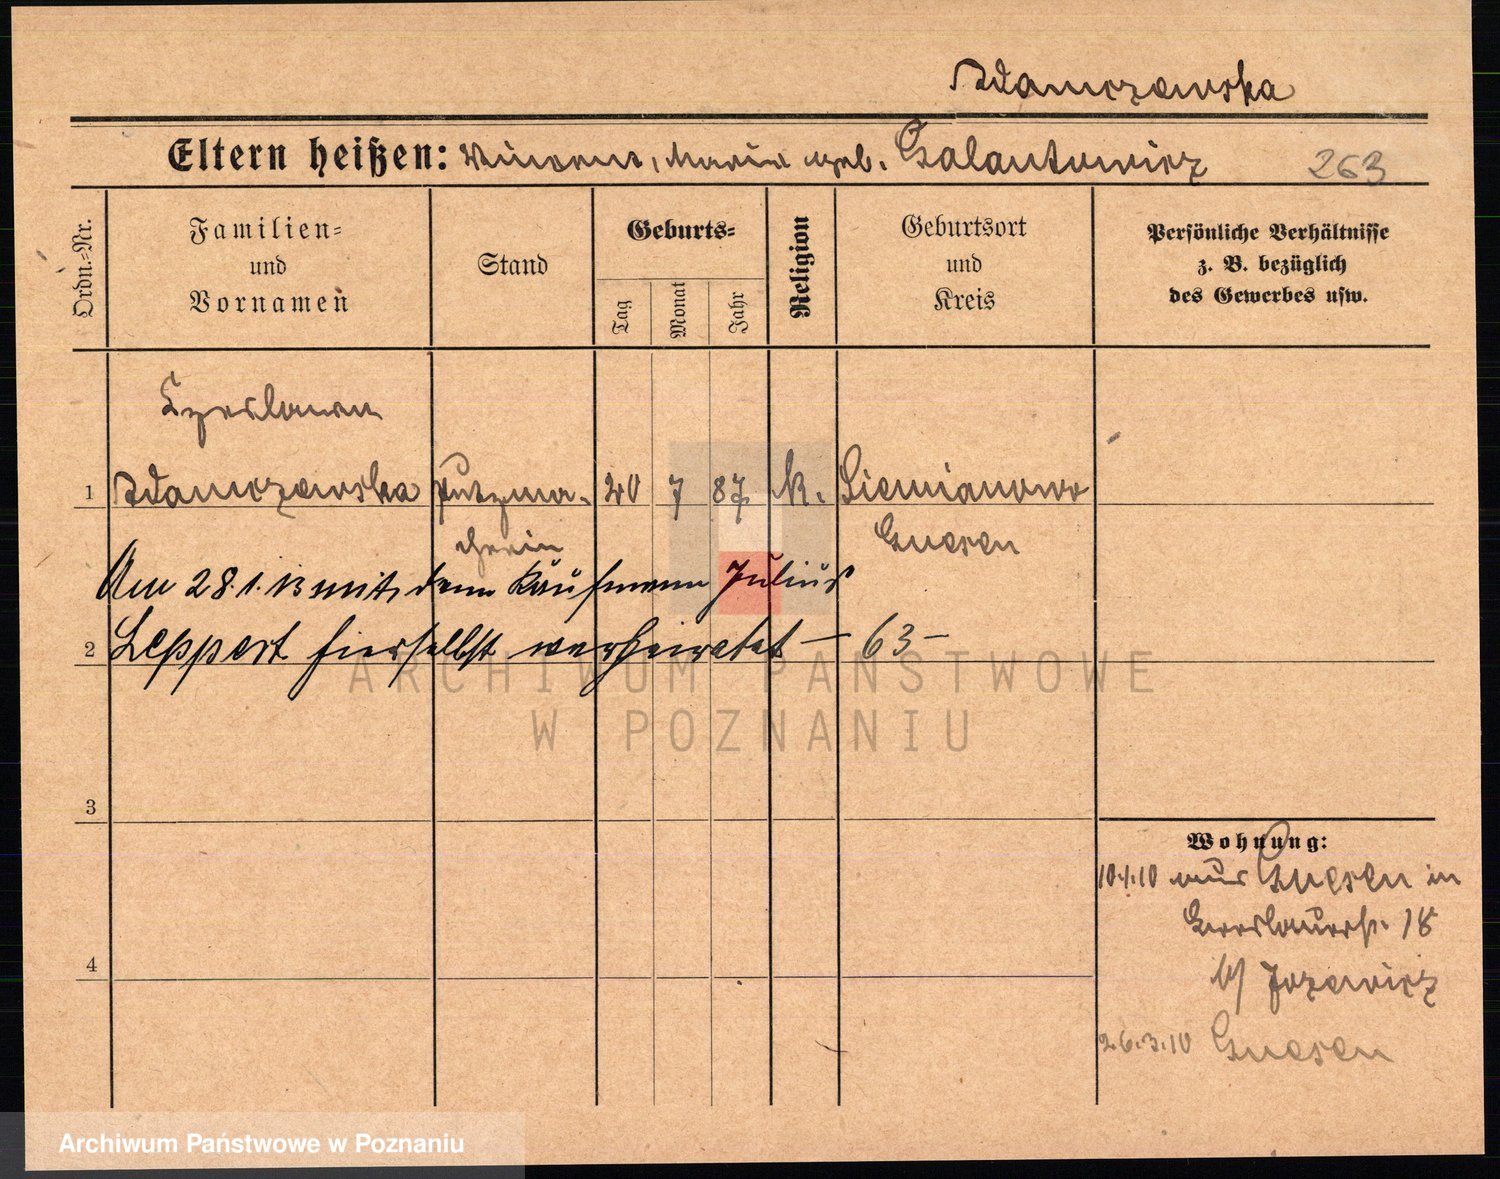 Adamczewska
Eltern heißen: Vincent, Maria geb. Galantowicz 263
Ordn.-Nr.
Familien- und Vornamen
Stand
Geburts-
Tag
Monat
Jahr
Religion
Geburtsort und Kreis
Persönliche Verhältnisse z. B. bezüglich des Gewerbes usw.
Czeslawa
1 Adamczewska Putzma- 20 7 87 K. Siemianowo
cherin Gnesen
Am 28.1.13 mit dem Kaufmann Julius
2 Leppert hierselbst verheiratet — 63 —
3
4
Wohnung:
10.1.10 aus Gnesen in
Breslauerst. 18
b/ Jozewicz
26.3.10 Gnesen
ARCHIWUM PAŃSTWOWE
W POZNANIU
Archiwum Państwowe w Poznaniu